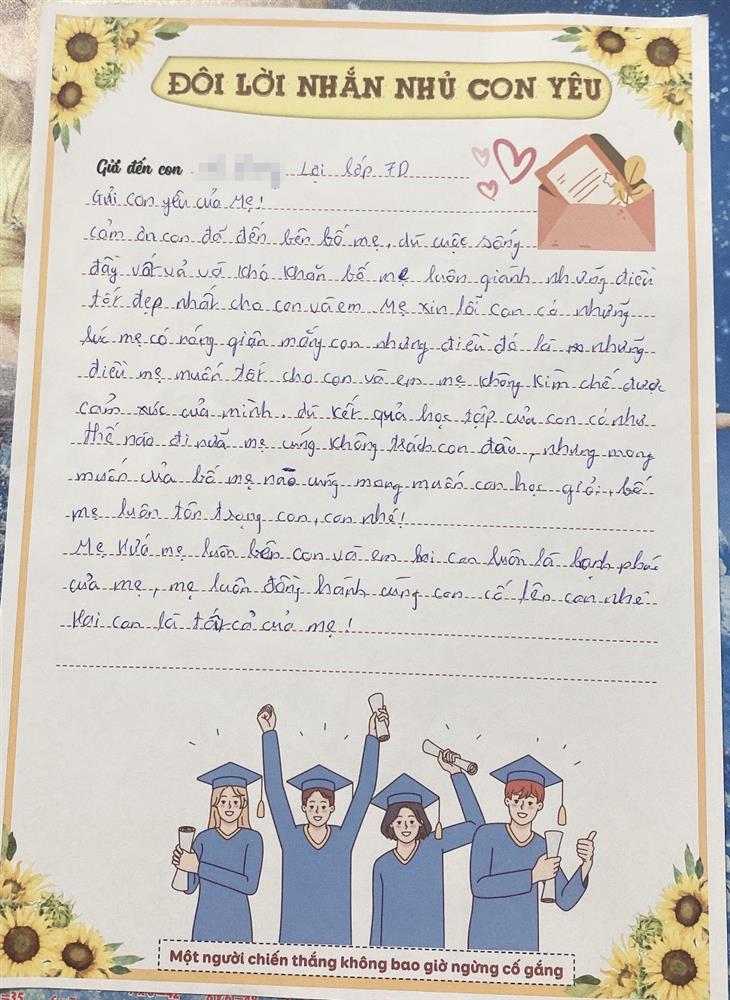 ĐÔI LỜI NHẮN NHỦ CON YÊU
Gửi đến con Lại lớp 7D
Gửi con yêu của Mẹ!
Cảm ơn con đã đến bên bố mẹ, dù cuộc sống
đầy vất vả và khó khăn bố mẹ luôn giành những điều
tốt đẹp nhất cho con và em. Mẹ xin lỗi con có những
lúc mẹ có nóng giận mắng con nhưng điều đó là những
điều mẹ muốn tốt cho con và em mẹ không kìm chế được
cảm xúc của mình. dù kết quả học tập của con có như
thế nào đi nữa mẹ cũng không trách con đâu, nhưng mong
muốn của bố mẹ nào cũng mong muốn con học giỏi, bố
mẹ luôn tôn trọng con, con nhé!
Mẹ Hứa mẹ luôn bên con và em hai con luôn là hạnh phúc
của mẹ, mẹ luôn đồng hành cùng con cố lên con nhé
Hai con là tất cả của mẹ!
Một người chiến thắng không bao giờ ngừng cố gắng